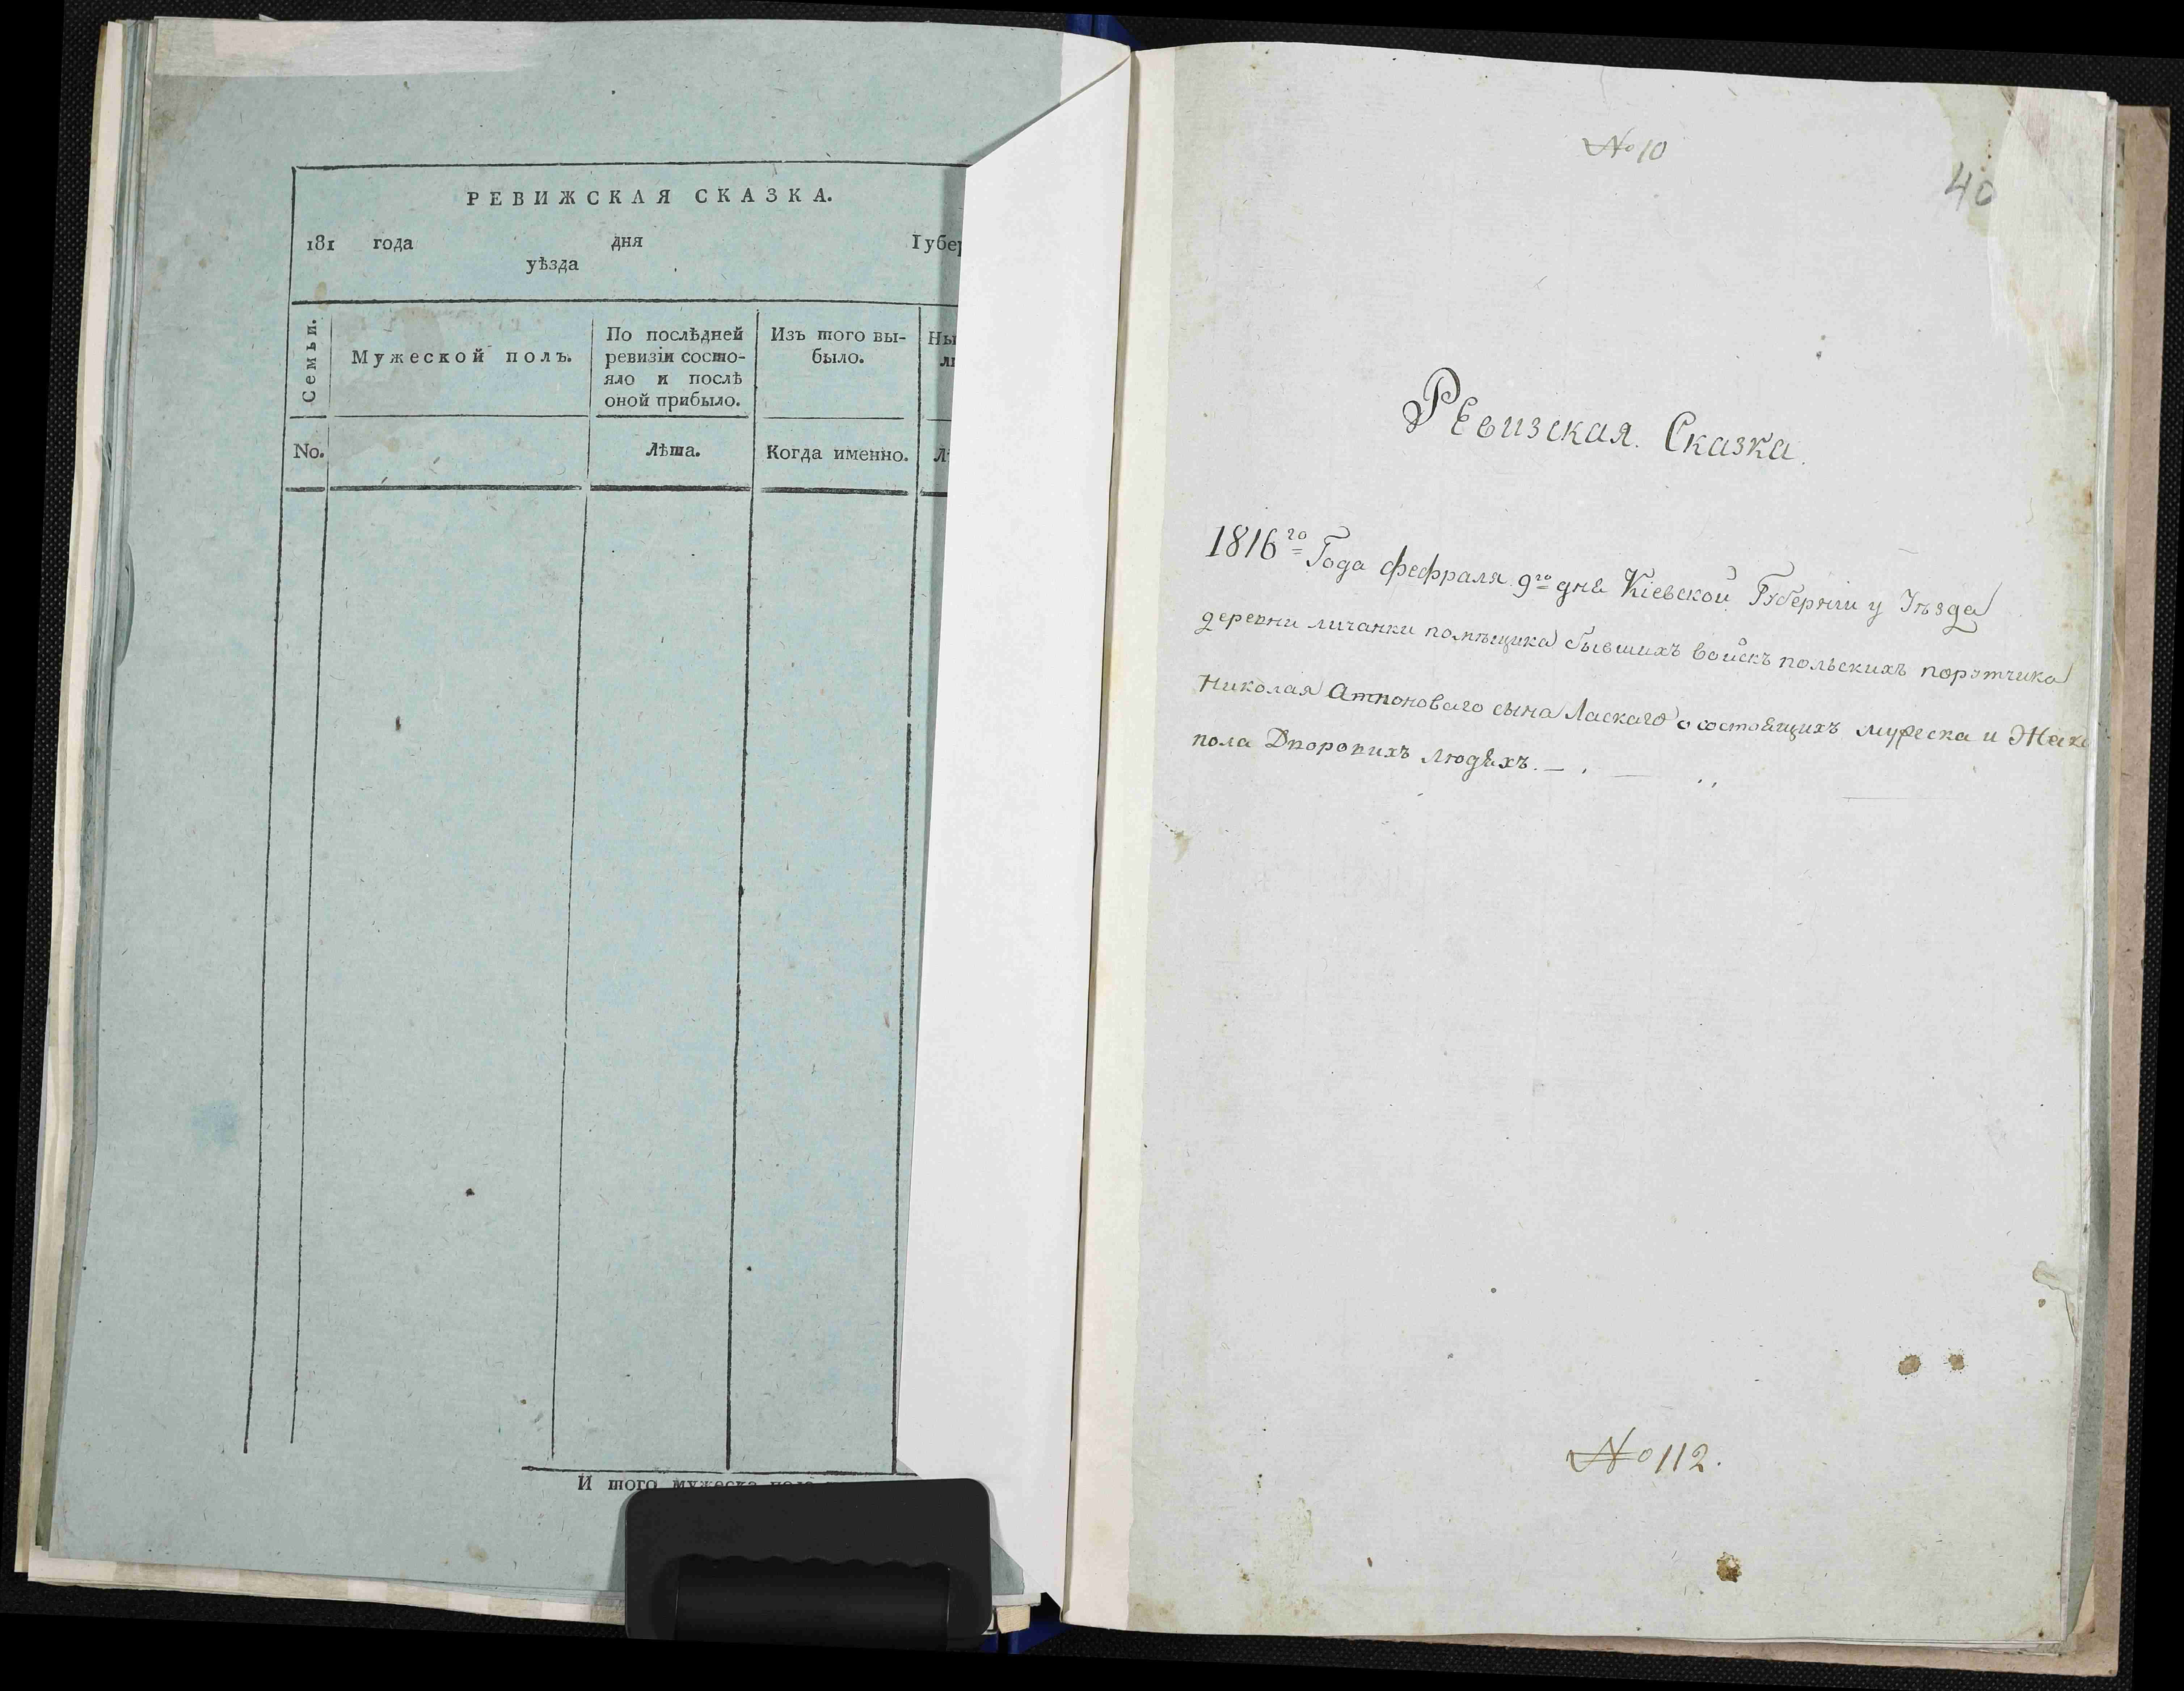 РЕВИЖСКАЯ СКАЗКА.
181 года дня Губер
уѣзда
Семьи.
Мужеской полъ.
По послѣдней
ревизіи состо-
яло и послѣ
оной прибыло.
Изъ того вы-
было.
Ны
ли
No.
Лѣта.
Когда именно.
Лѣ
И того мужеска
No 10
40
Ревизская. Сказка.
1816го Года февраля 9го дня Кіевской Губерніи у Уѣзда
деревни личанки помѣщика бывшихъ войскъ польскихъ порутчика
Николая Антоноваго сына Ласкаго о состоящихъ мужеска и Женс
пола Дворовихъ людѣхъ.
No 112.